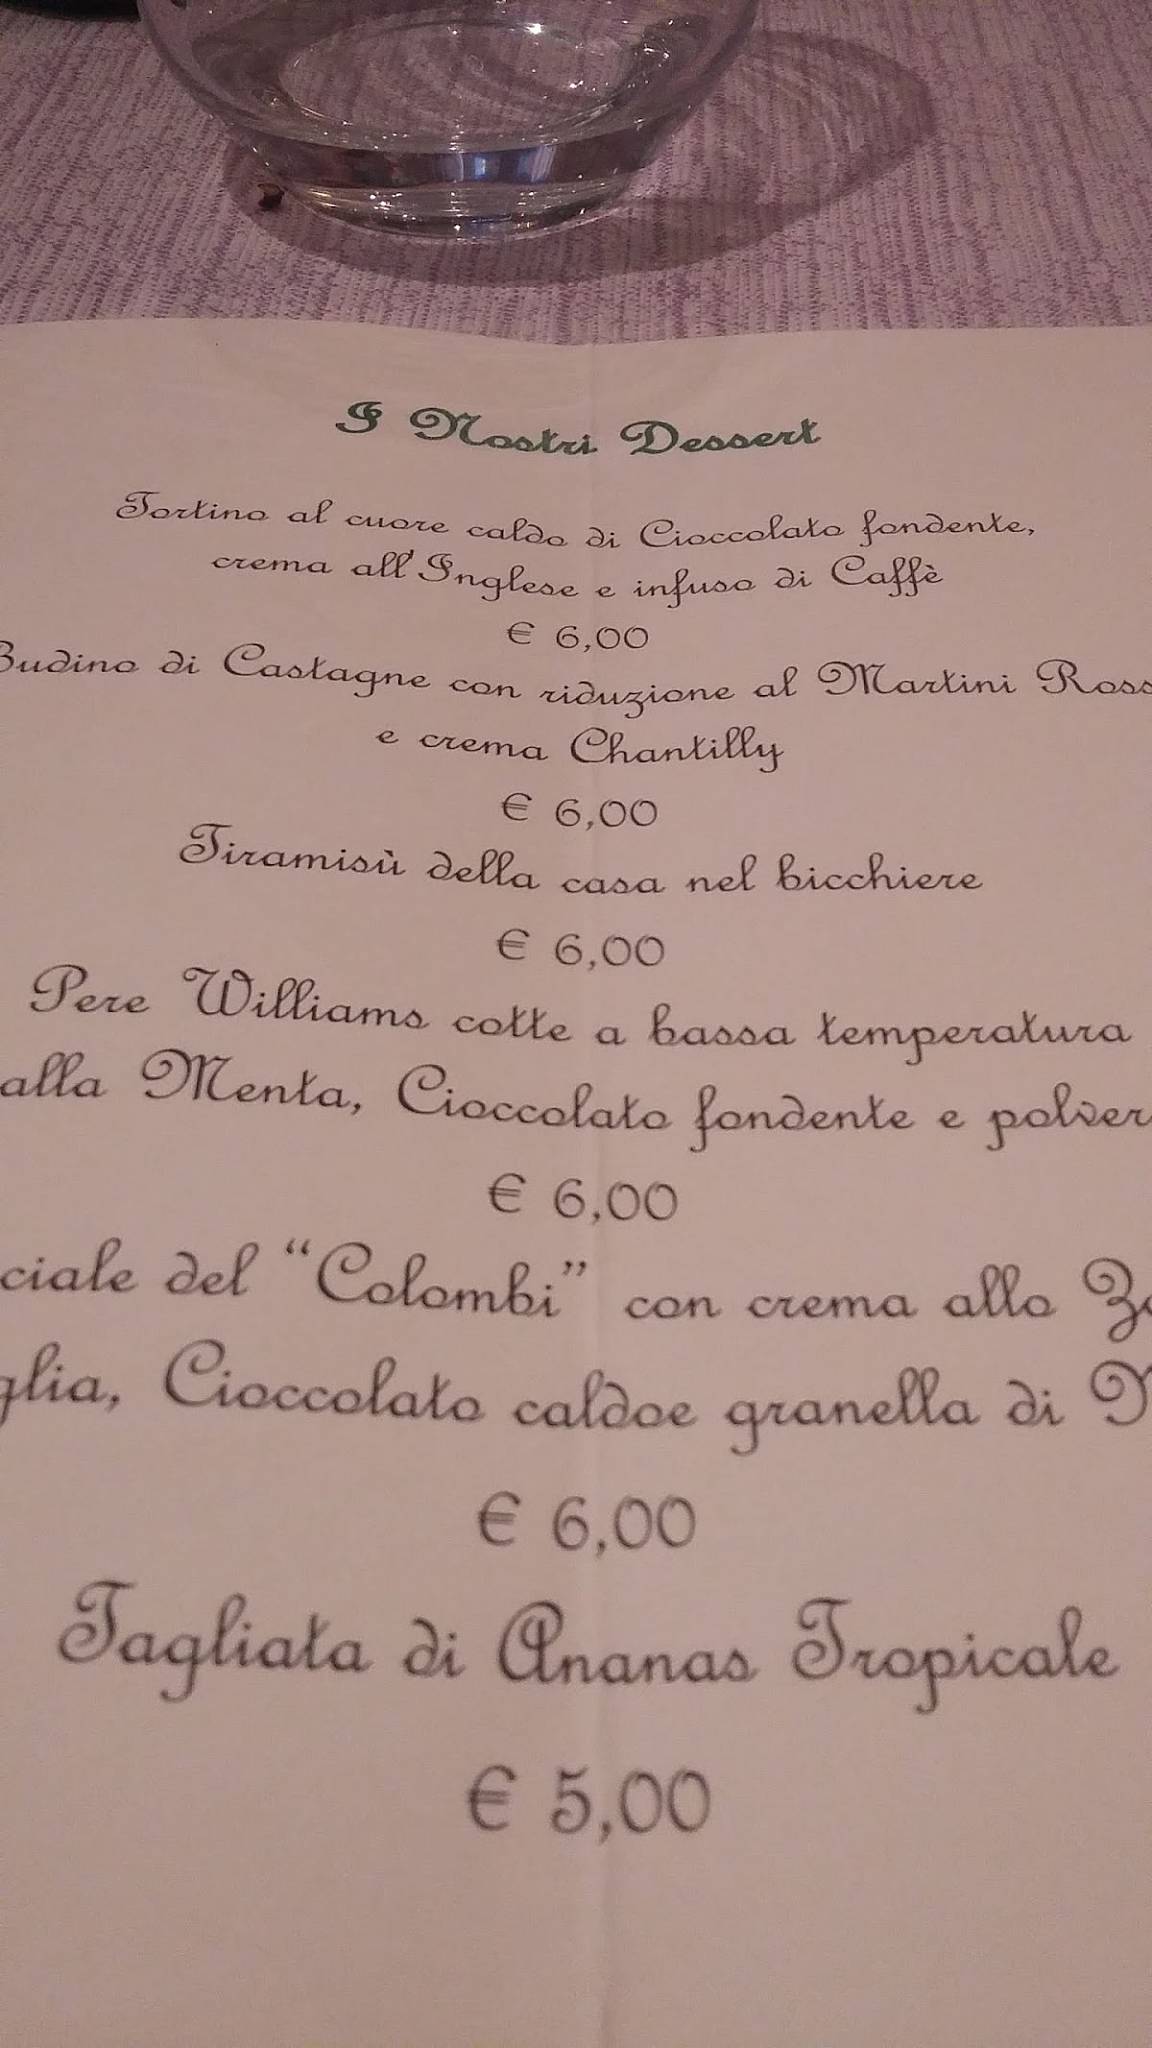 I Nostri Dessert
Tortino al cuore caldo di Cioccolato fondente,
crema all'Inglese e infuso di Caffè
€ 6,00
Budino di Castagne con riduzione al Martini
e crema Chantilly
€ 6,00
Tiramisù della casa nel bicchiere
€ 6,00
Pere Williams cotte a bassa temperatura
alla Menta, Cioccolato fondente e
€ 6,00
del "Colombi" con crema allo
Cioccolato caldoe granella di
€ 6,00
Tagliata di Ananas Tropicale
€ 5,00